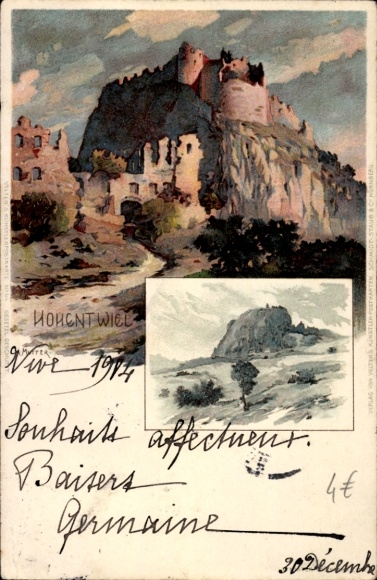 HOHENTWIEL
Vive 1904
Souhaits affectueux.
Baisers
Germaine
4€
30 Décembre